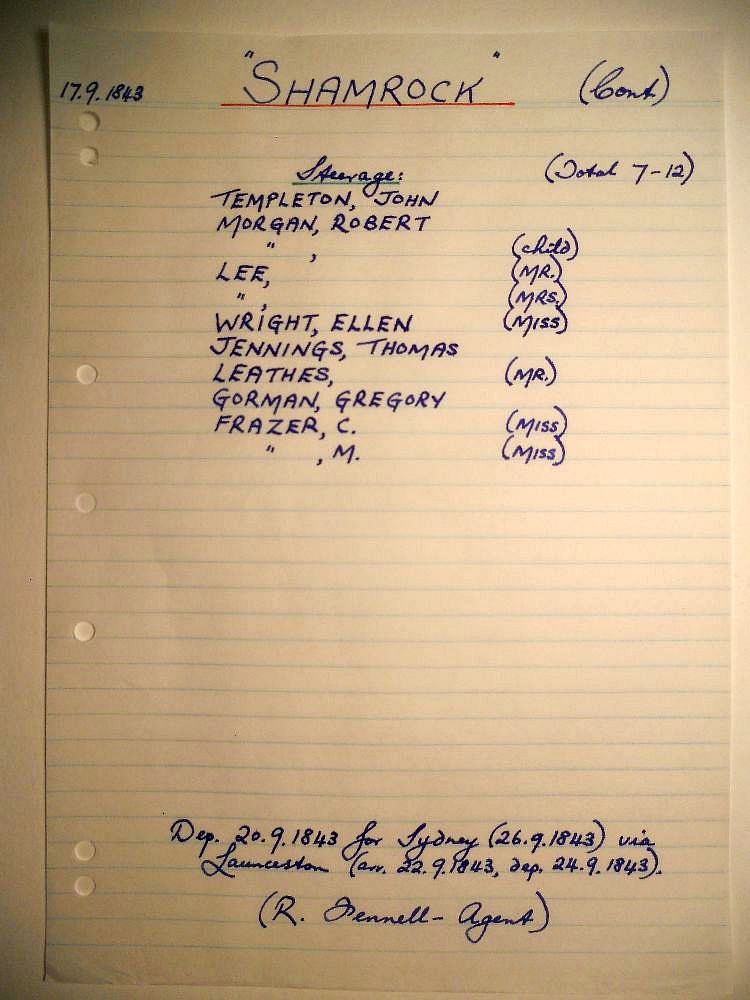 17.9.1843 "SHAMROCK" (Cont)
Steerage: (Total 7-12)
TEMPLETON, JOHN
MORGAN, ROBERT
" , (child)
LEE, (MR.)
" , (MRS.)
WRIGHT, ELLEN (MISS)
JENNINGS, THOMAS
LEATHES, (MR.)
GORMAN, GREGORY
FRAZER, C. (MISS)
" , M. (MISS)
Dep. 20.9.1843 for Sydney (26.9.1843) via
Launceston (arr. 22.9.1843, dep. 24.9.1843).
(R. Fennell - Agent)